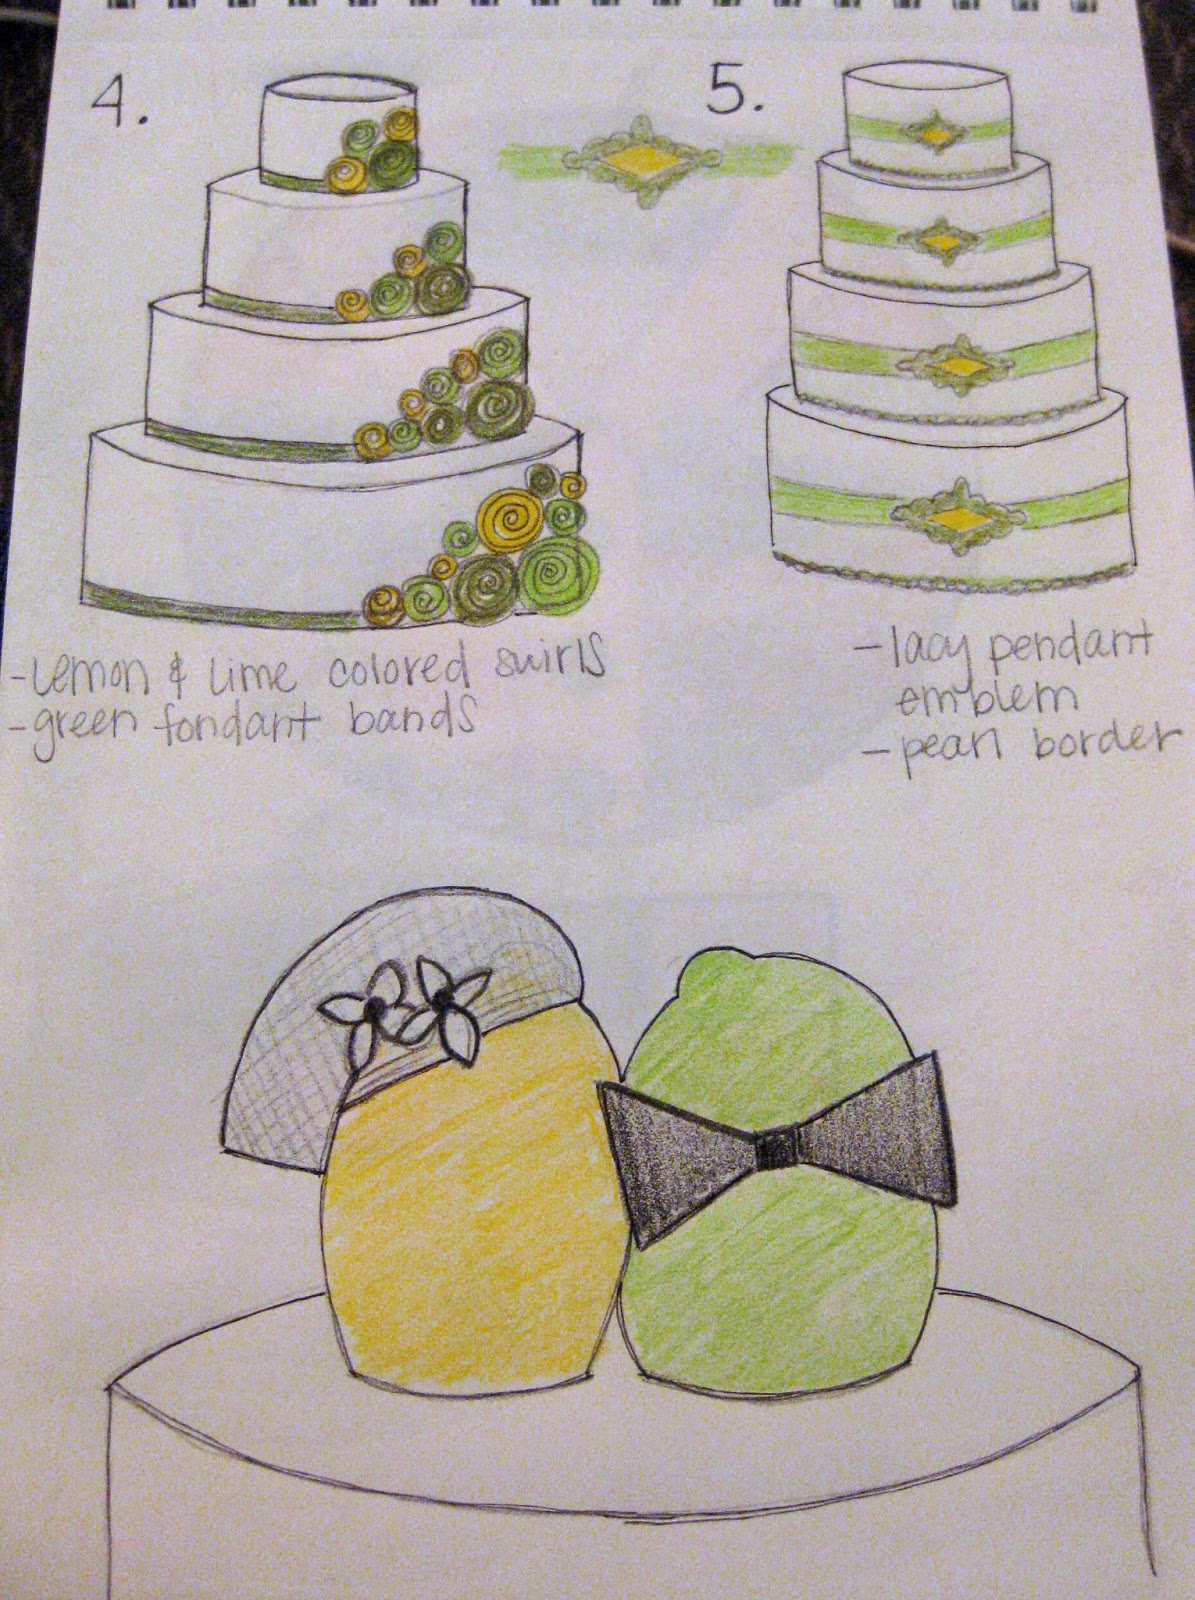 4.
5.
-Lemon & Lime colored swirls
-green fondant bands
-lacy pendant
emblem
-pearl border